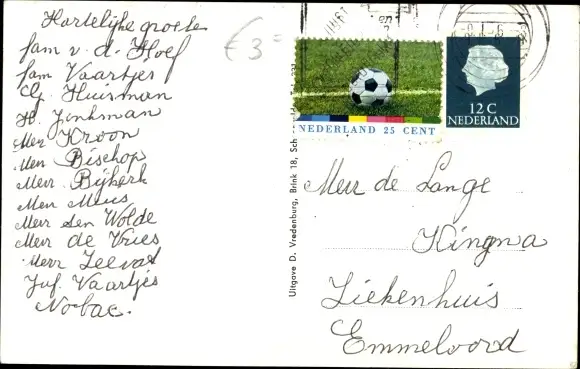 Hartelijke groeten
fam v. d. Hoef
fam Vaartjes
Huisman
H. Jonkman
Mevr Kroon
Mevr Bischop
Mevr Bijkerk
Mevr Meus
Mevr ten Wolde
Mevr de Vries
Mevr Zeeval
Juf. Vaartjes
Nobac.
€ 3 =
NEDERLAND 25 CENT
12 C
NEDERLAND
Uitgave D. Vredenburg, Brink 18, Sch
Mevr de Lange
Kingma
Ziekenhuis
Emmeloord